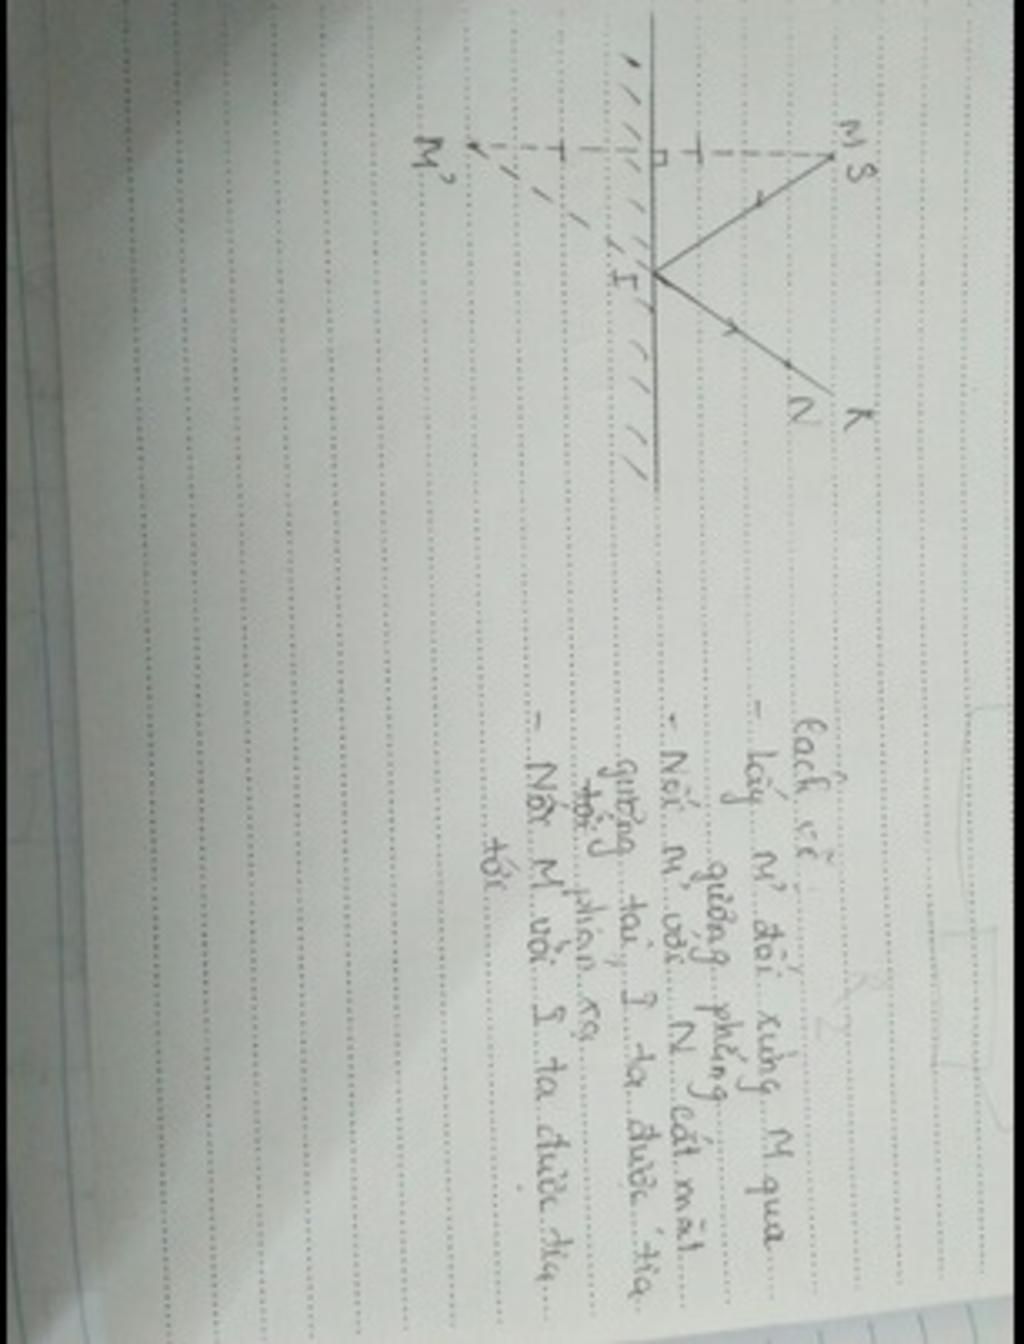 M S
K
N
I
M'
Cách vẽ
- Lấy M' đối xứng M qua
gương phẳng
- Nối M' với N cắt mặt
gương tại I ta được tia
phản xạ
- Nối M với I ta được tia
tới